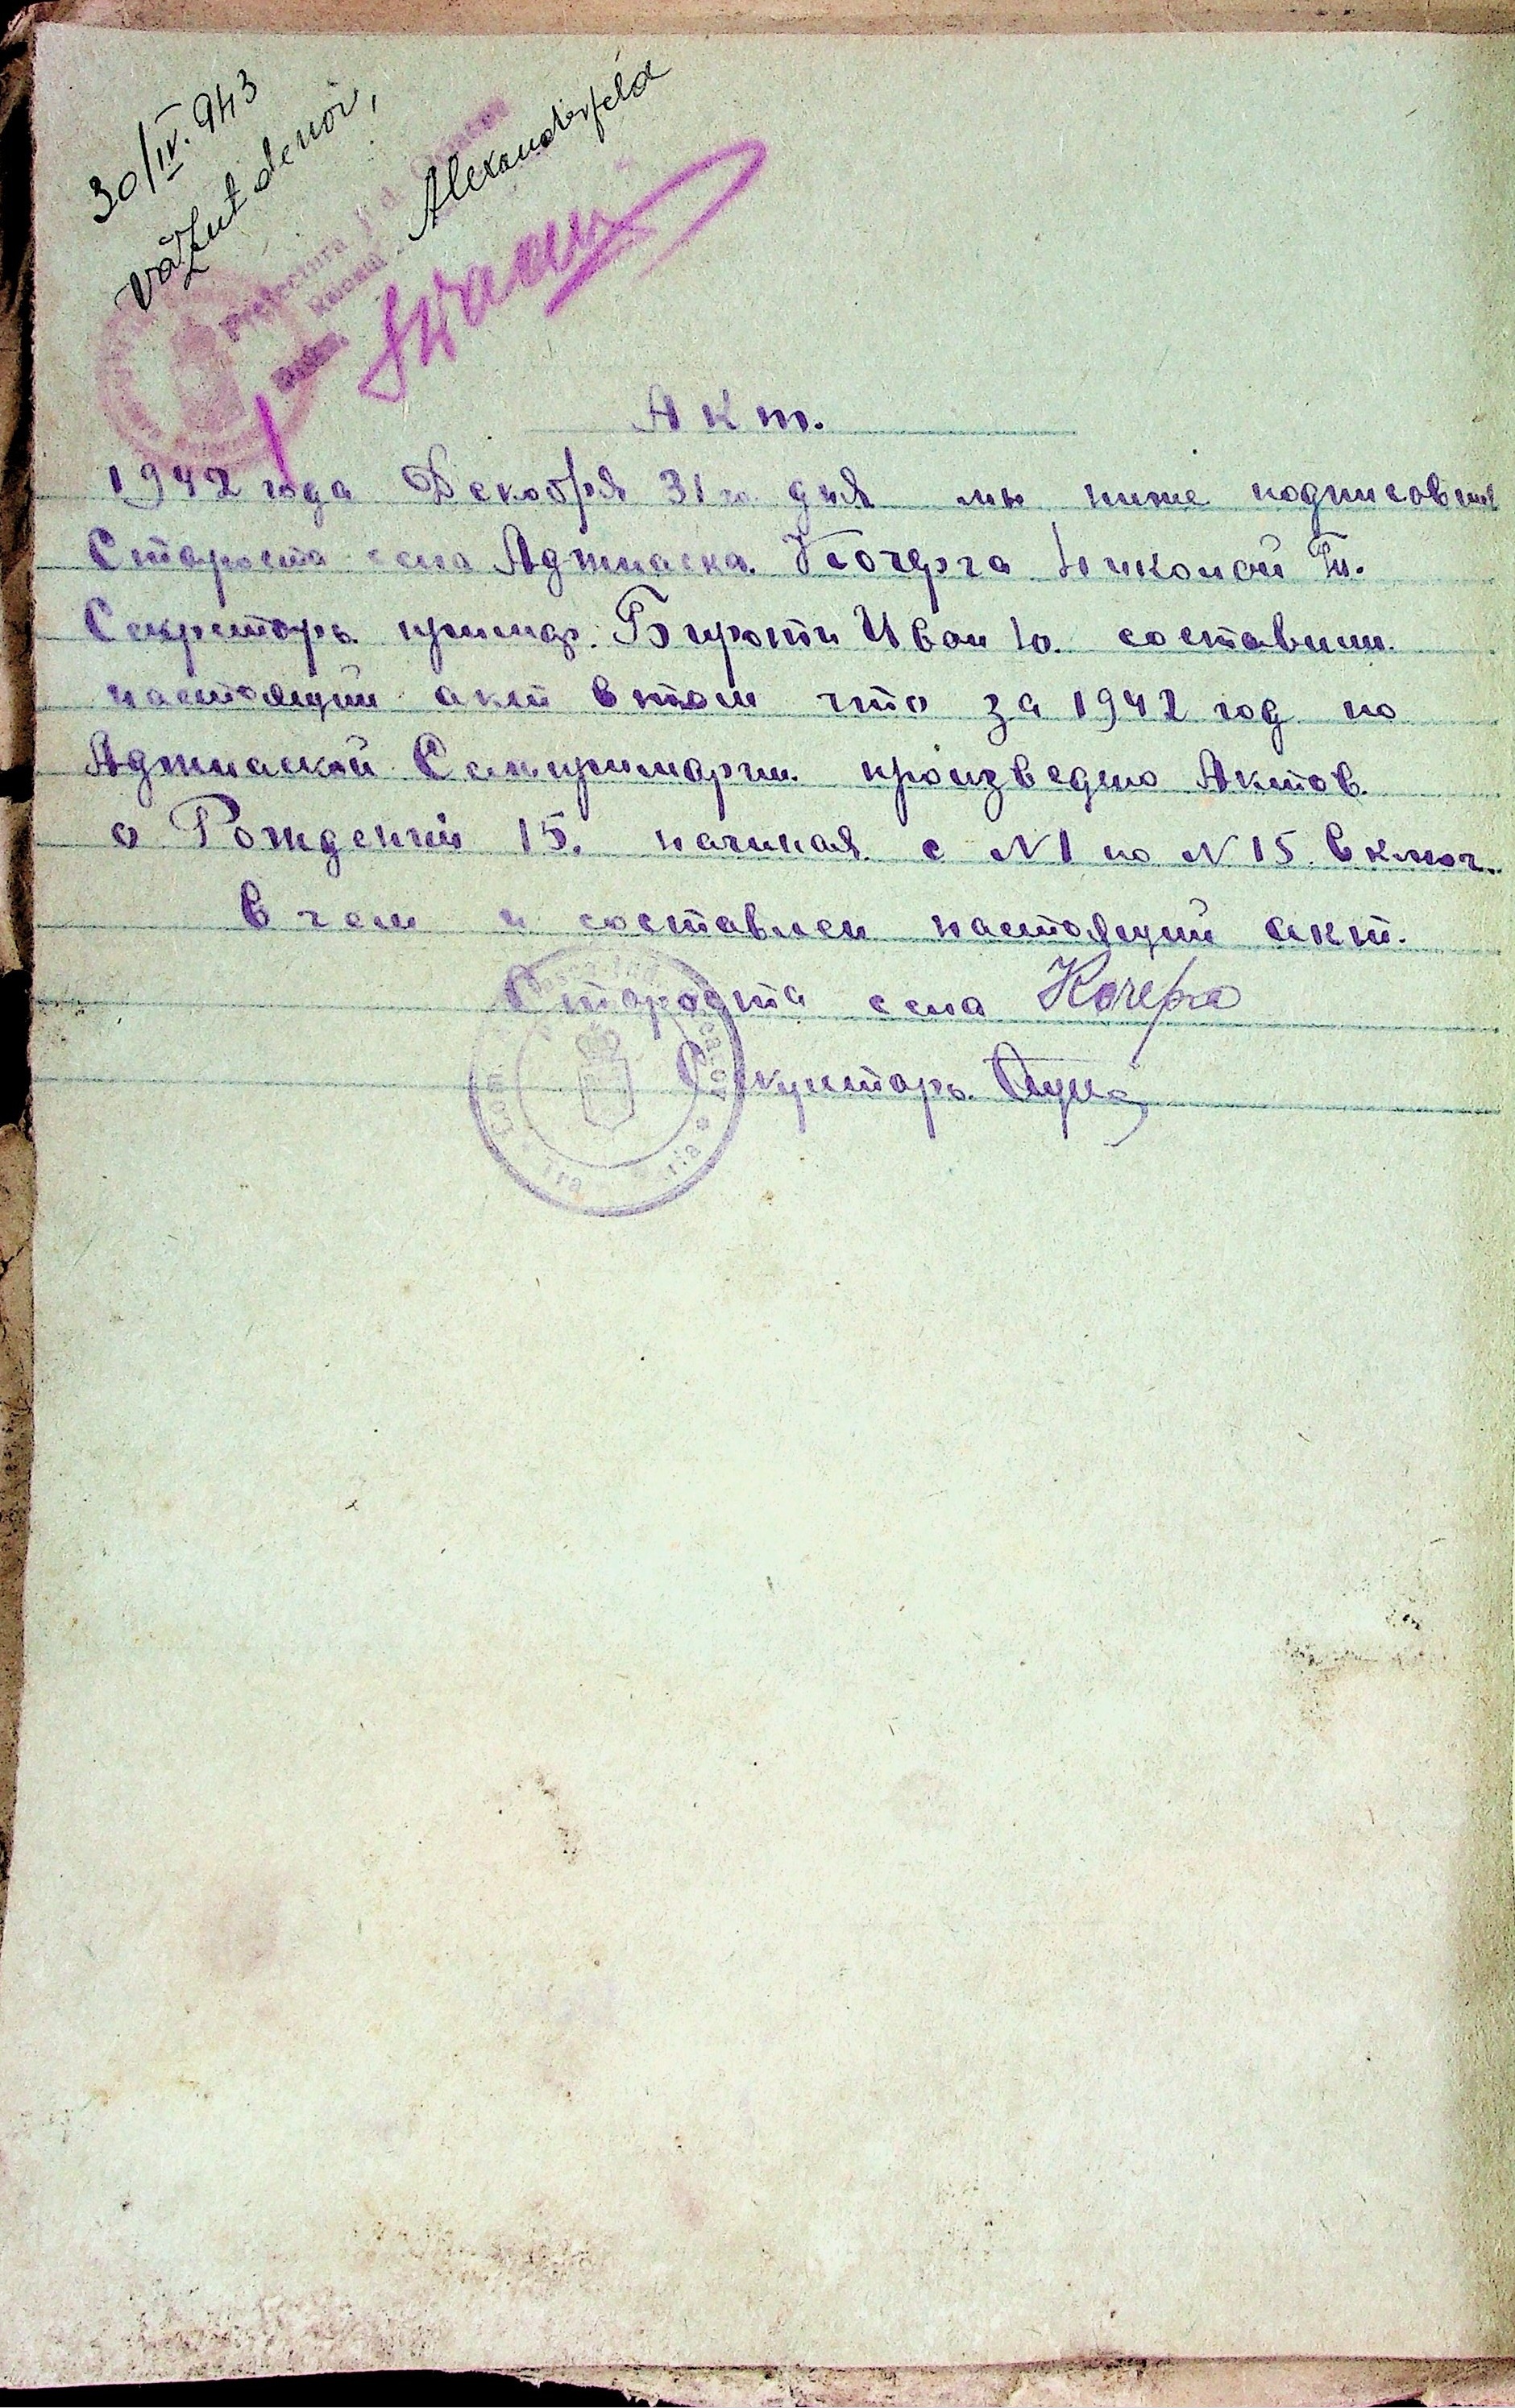 30/IV. 943
Văzut de noi,
Prefectura Jud.
Alexanderfeld
Акт.
1942 года Декабря 31го дня мы ниже подписовши
Староста села Аджиаска. Кочерга Николай
Секретарь примар. Иван Ю. составили
настоящий акт втом что за 1942 год по
Аджиаской Сельпримарии произведено Актов.
о Рождении 15. начиная с N1 по N15. включ.
в чем и составлен настоящий акт.
Староста села Кочерга
Секретарь